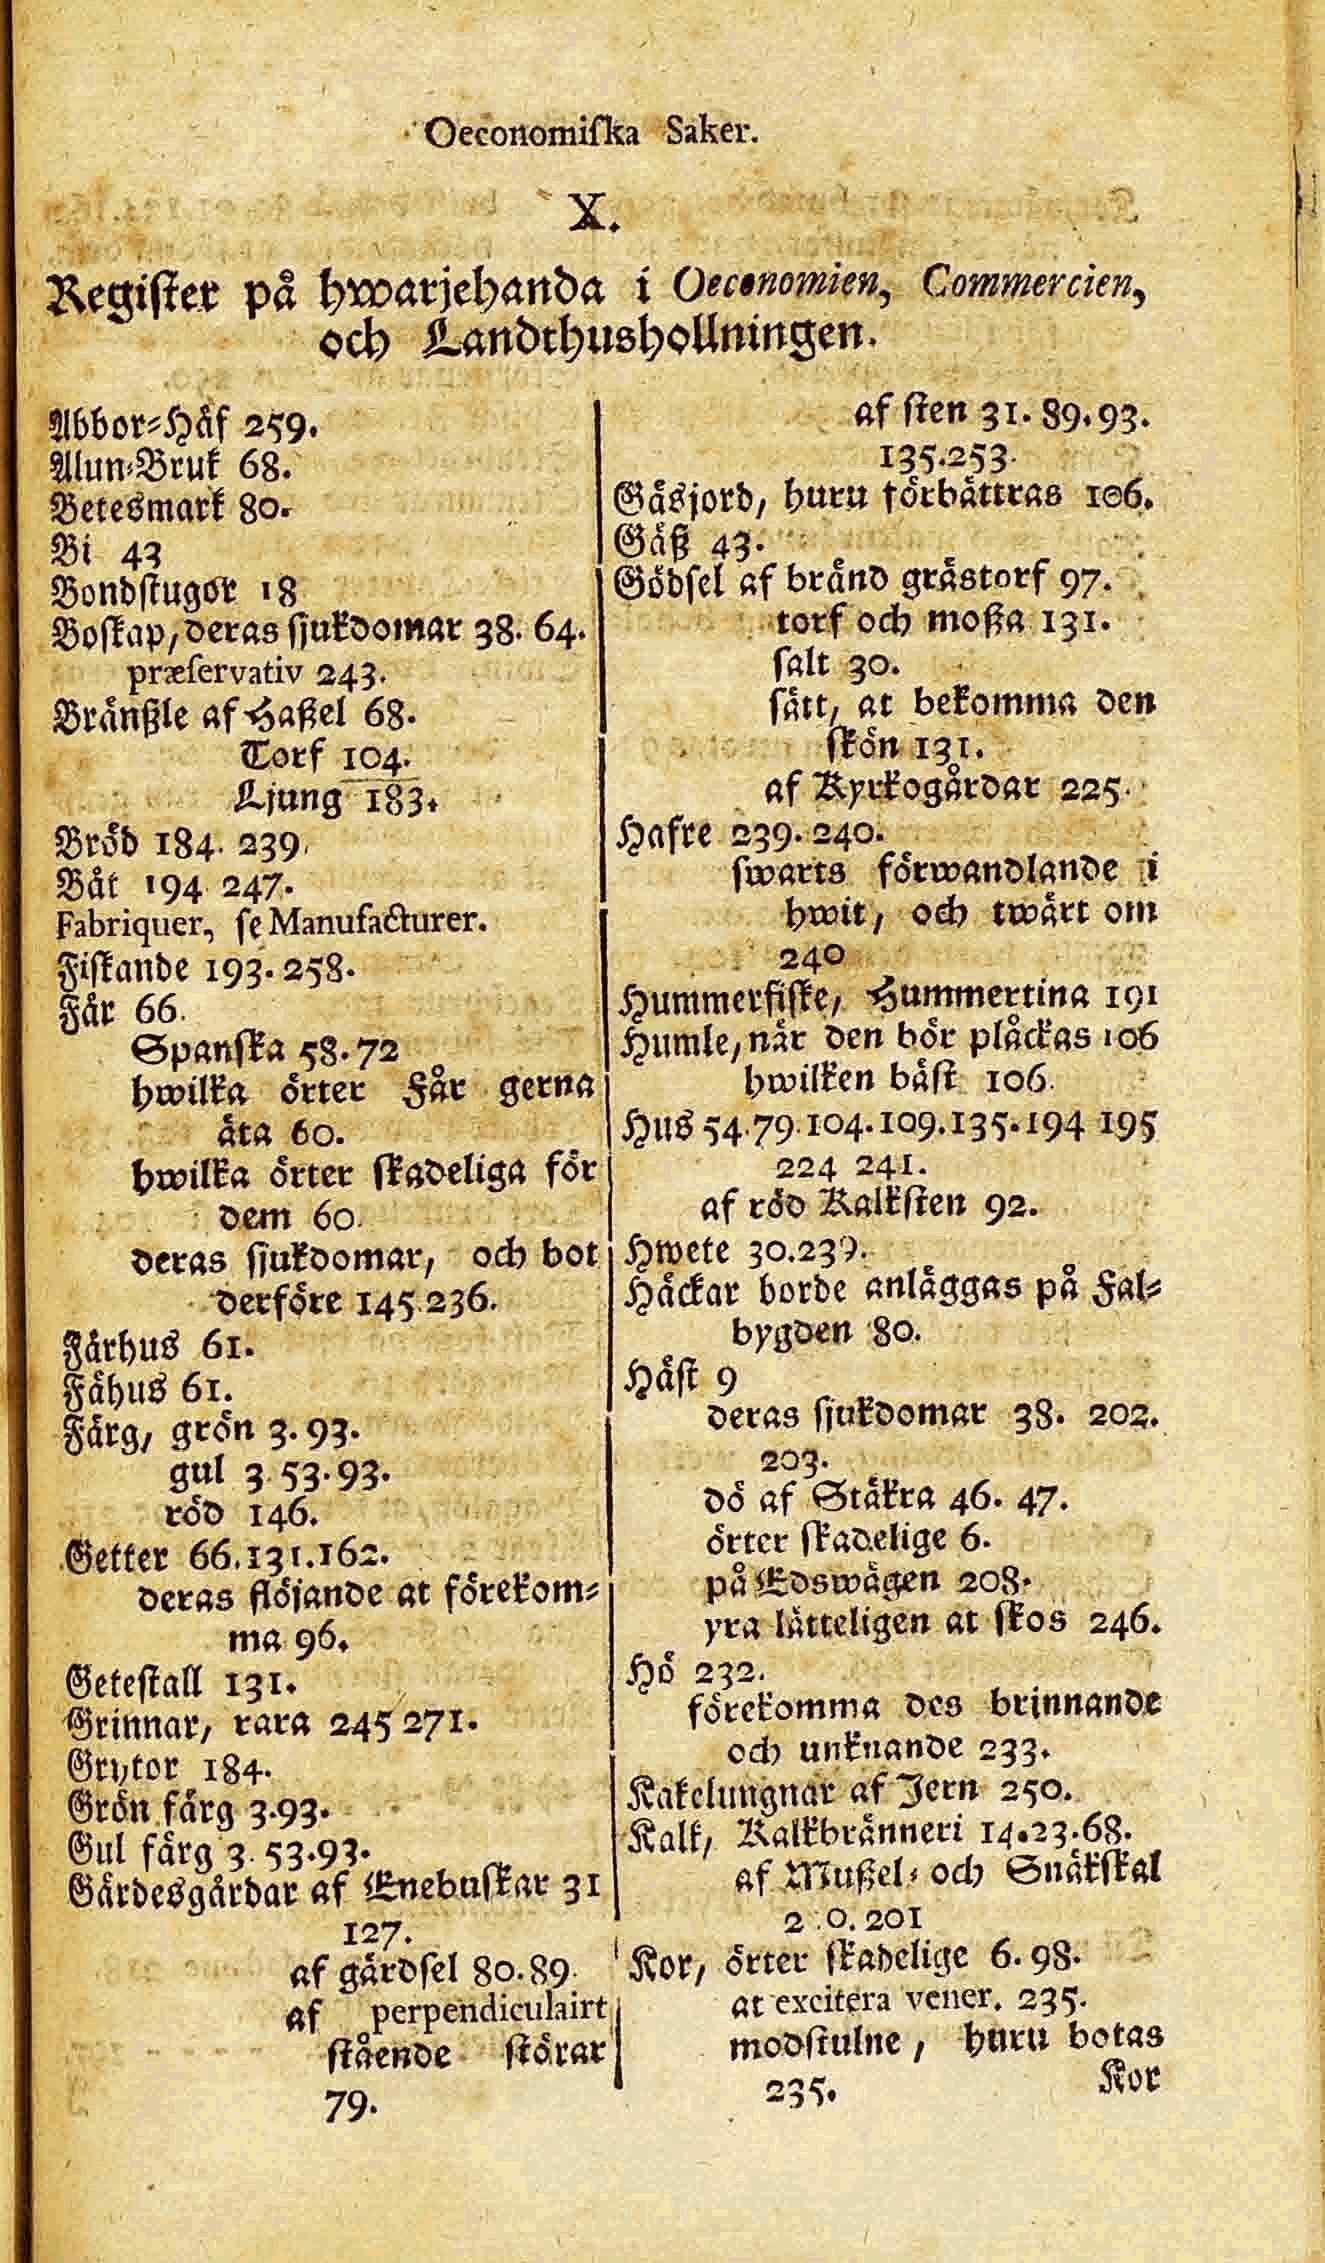 Oeconomiſka Saker.
X.
Regiſter på hwarjehanda i Oeconomien, Commercien,
och Landthushollningen.
Abbor-Håf 259.
Alun-Bruk 68.
Betesmark 80.
Bi 43
Bondſtugor 18
Boſkap, deras ſjukdomar 38. 64.
præſervativ 243.
Bränßle af Haßel 68.
Torf 104.
Ljung 183.
Bröd 184. 239.
Båt 194 247.
Fabriquer, ſe Manufacturer.
Fiſkande 193. 258.
Får 66.
Spanſka 58. 72
hwilka örter Får gerna
äta 60.
hwilka örter ſkadeliga för
dem 60.
deras ſjukdomar, och bot
derföre 145. 236.
Fårhus 61.
Fähus 61.
Färg, grön 3. 93.
gul 3. 53. 93.
röd 146.
Getter 66. 131. 162.
deras flöjande at förekom-
ma 96.
Geteſtall 131.
Grinnar, rara 245 271.
Grytor 184.
Grön färg 3. 93.
Gul färg 3. 53. 93.
Gärdesgårdar af Enebuſkar 31
127.
af gärdſel 80. 89.
af perpendiculairt
ſtående ſtörar
79.
af ſten 31. 89. 93.
135. 253.
Gäsjord, huru förbättras 106.
Gäß 43.
Gödſel af bränd grästorf 97.
torf och moßa 131.
ſalt 30.
ſätt, at bekomma den
ſkön 131.
af Kyrkogårdar 225.
Hafre 239. 240.
ſwarts förwandlande i
hwit, och twärt om
240
Hummerfiſke, Hummertina 191
Humle, när den bör plåckas 106
hwilken bäſt 106.
Hus 54. 79. 104. 109. 135. 194 195
224 241.
af röd Kalkſten 92.
Hwete 30. 239.
Häckar borde anläggas på Fal-
bygden 80.
Häſt 9
deras ſjukdomar 38. 202.
203.
dö af Stäkra 46. 47.
örter ſkadelige 6.
på Edswägen 208.
yra lätteligen at ſkos 246.
Hö 232.
förekomma des brinnande
och unknande 233.
Kakelungnar af Jern 250.
Kalk, Kalkbränneri 14. 23. 68.
af Mußel- och Snäkſkal
201
Kor, örter ſkadelige 6. 98.
at excitera vener. 235.
modſtulne, huru botas
235.
Kor